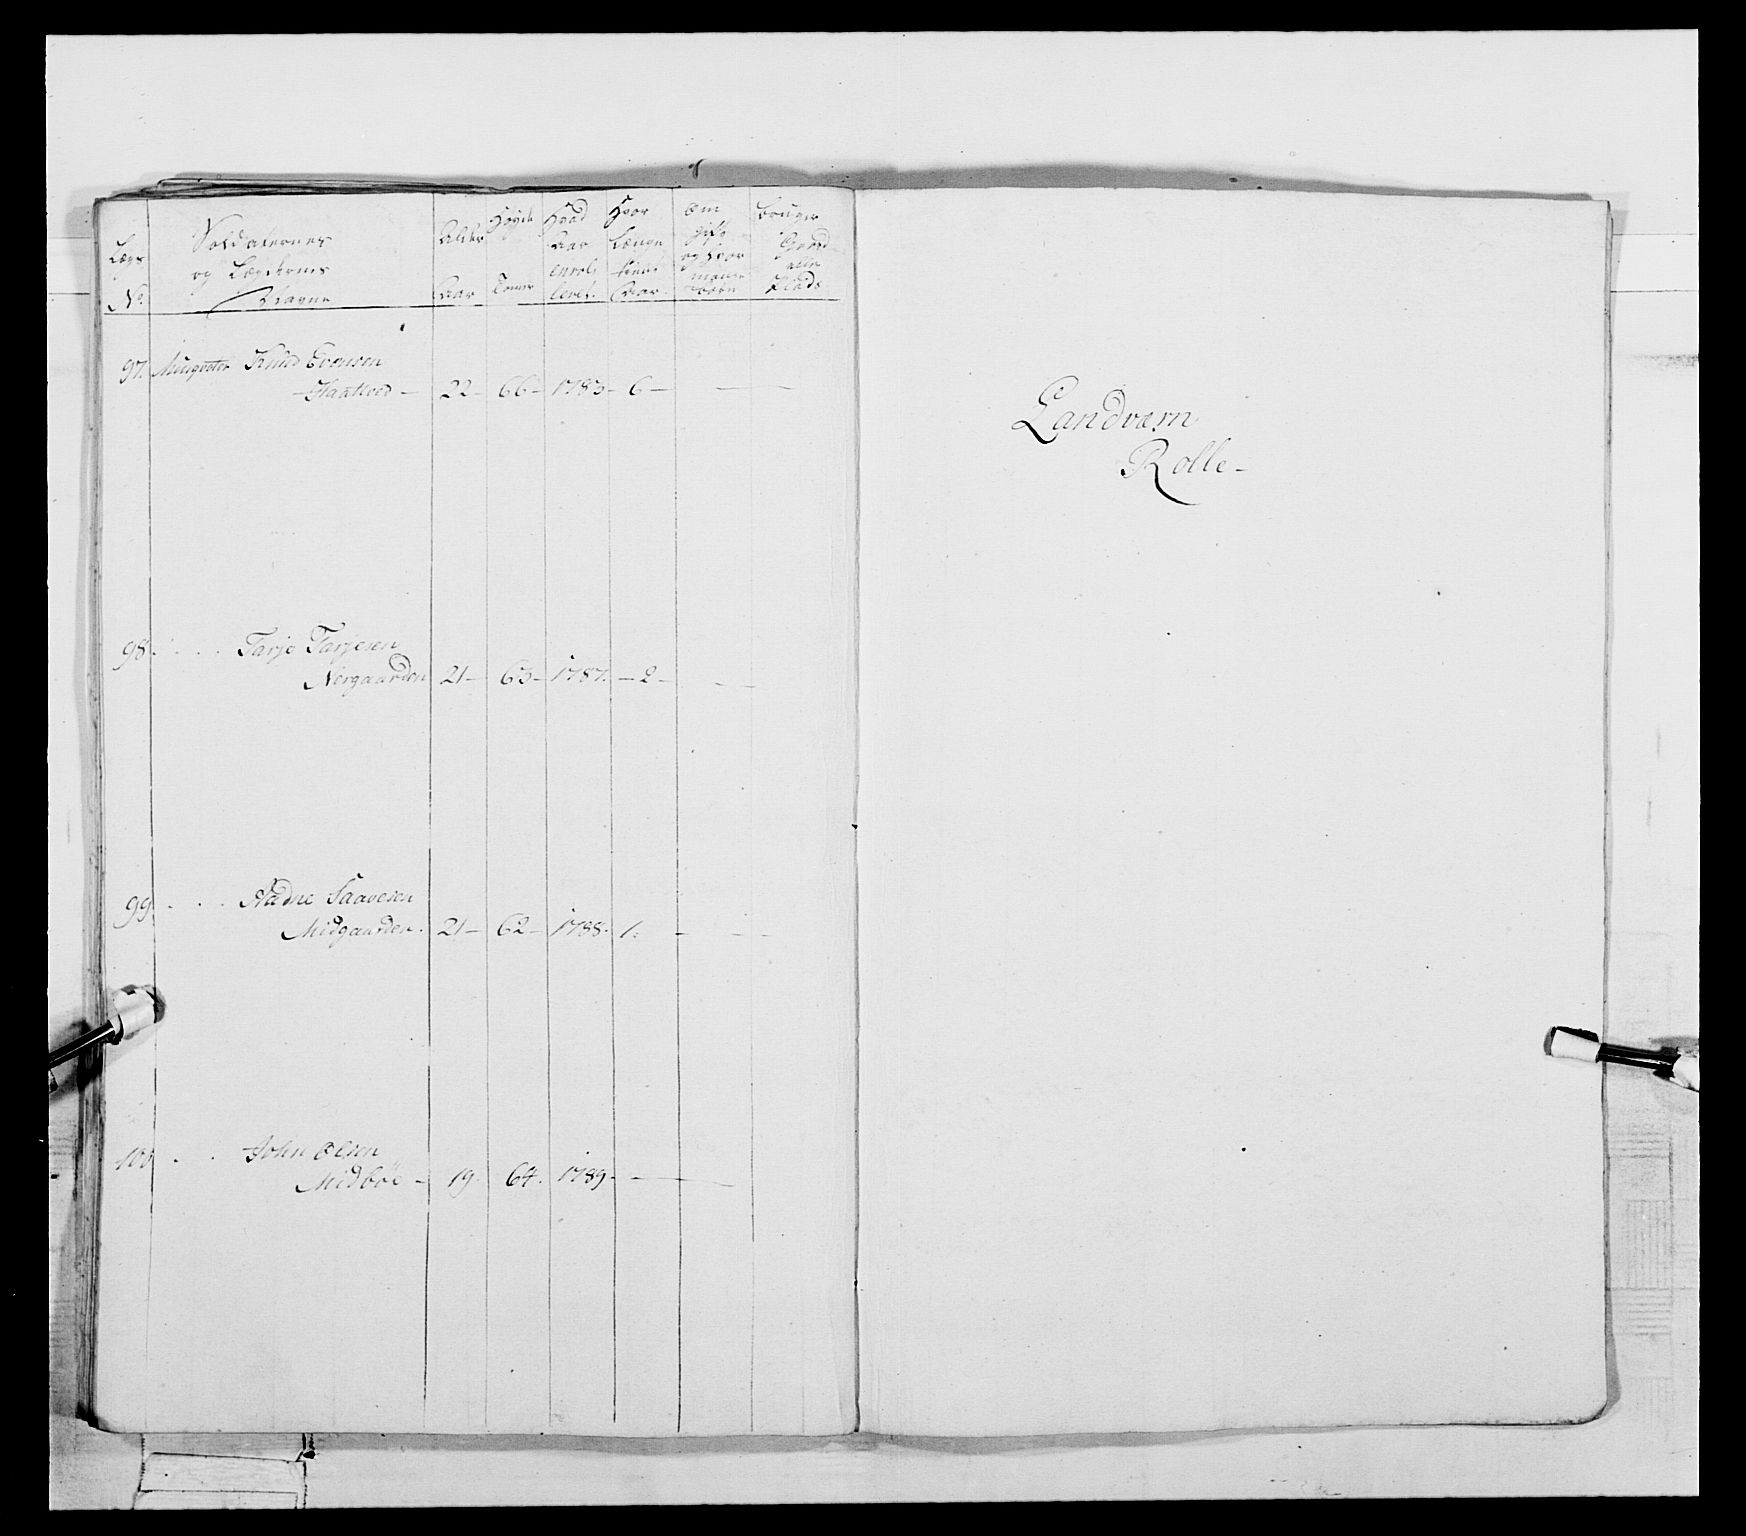 Lægs
No.
Soldaternes
og Lægdernes
Navne
Alder
Aar
Høyde
Tomer
Hvad
Aar
enrol
leret.
Hvor
længe
tient
Aar
Om
gift
og hvor
mange
Børn
Bruger
Gaard
eller
Plads
97. Musqveter Knud Evensen
Haatved - 22 - 66 - 1783 - 6 -
98. Tarje Tarjesen
Nergaarden 21 - 63 - 1787. - 2 -
99. Aadne Saavesen
Midgaarden. 21 - 62 - 1788. 1.
100. John Olsen
Midböe - 19. 64. 1789. -
Landværn
Rolle -